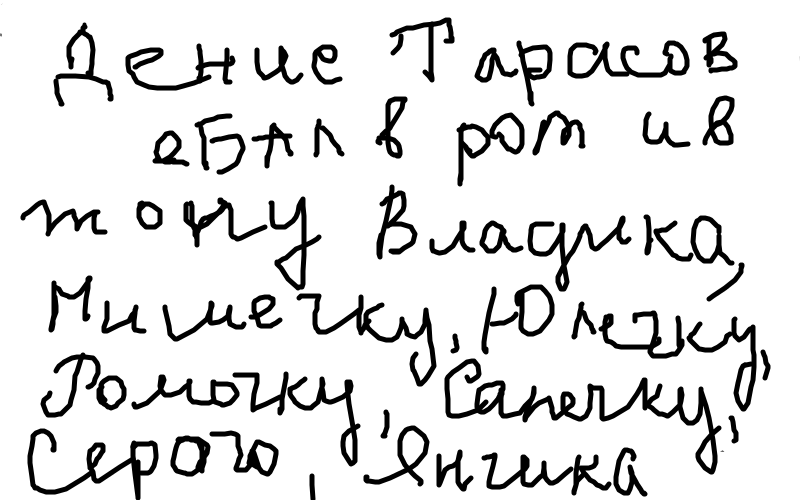 Денис Тарасов
еБАл в рот и в
жопу Владика,
Мишечку, Юлечку,
Ромочку, Санечку,
Серого, Янчика